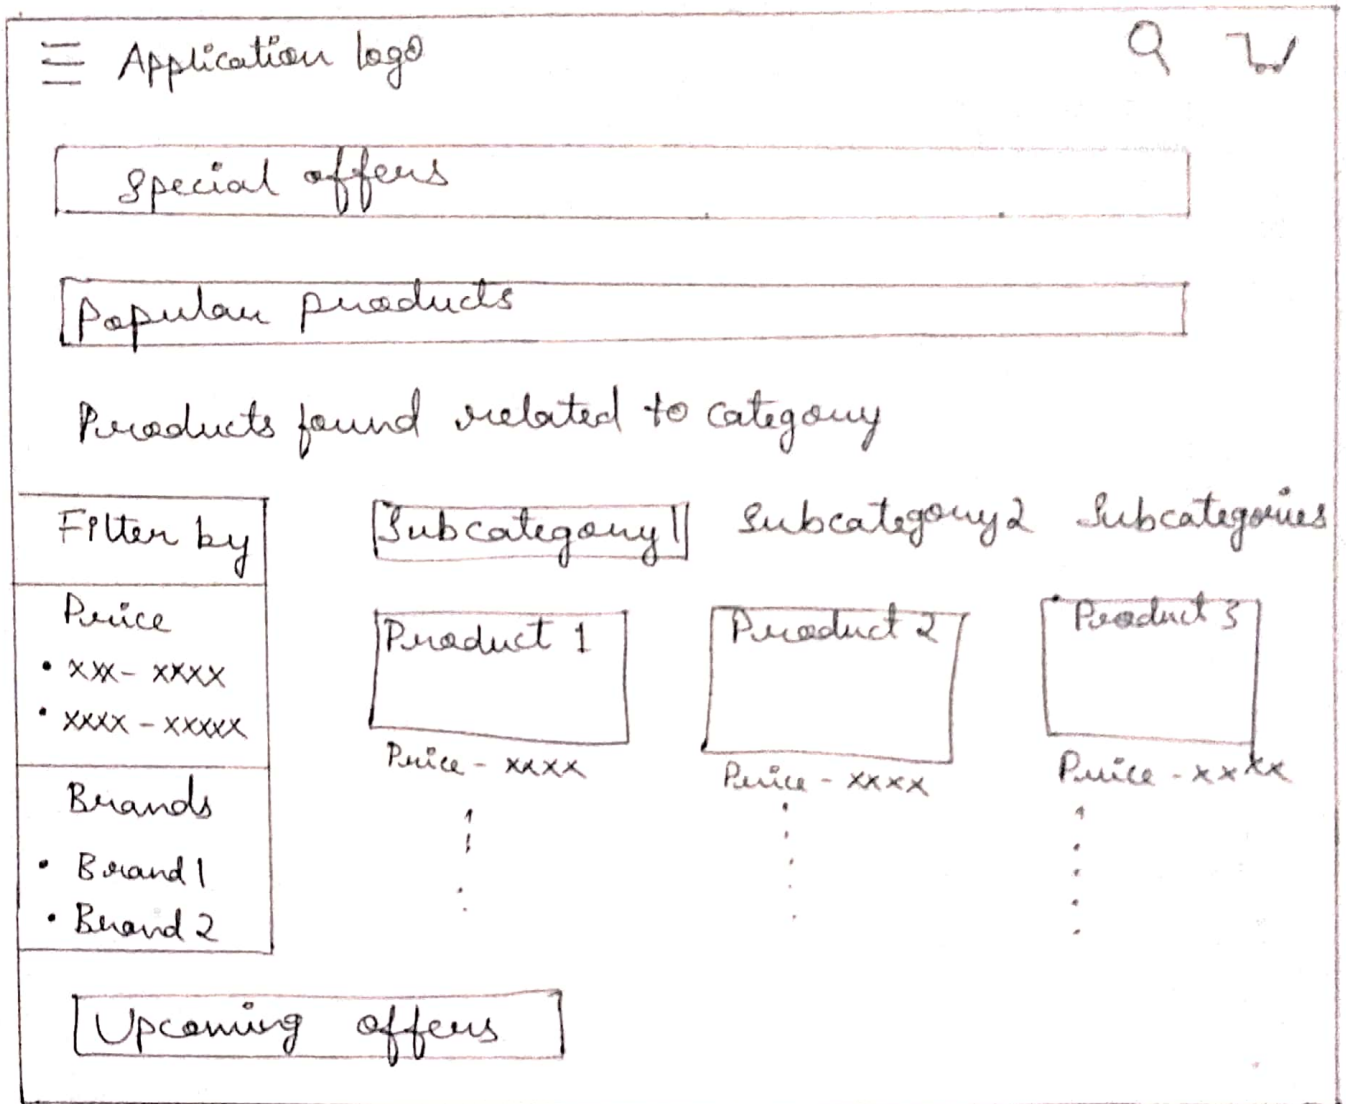 Application logo
Special offers
Popular products
Products found related to category
Filter by
Price
• xxx - xxxx
• xxxx - xxxxx
Brands
• Brand 1
• Brand 2
Subcategory 1 Subcategory 2 Subcategories
Product 1 Product 2 Product 3
Price - xxxx Price - xxxx Price - xxxx
Upcoming offers